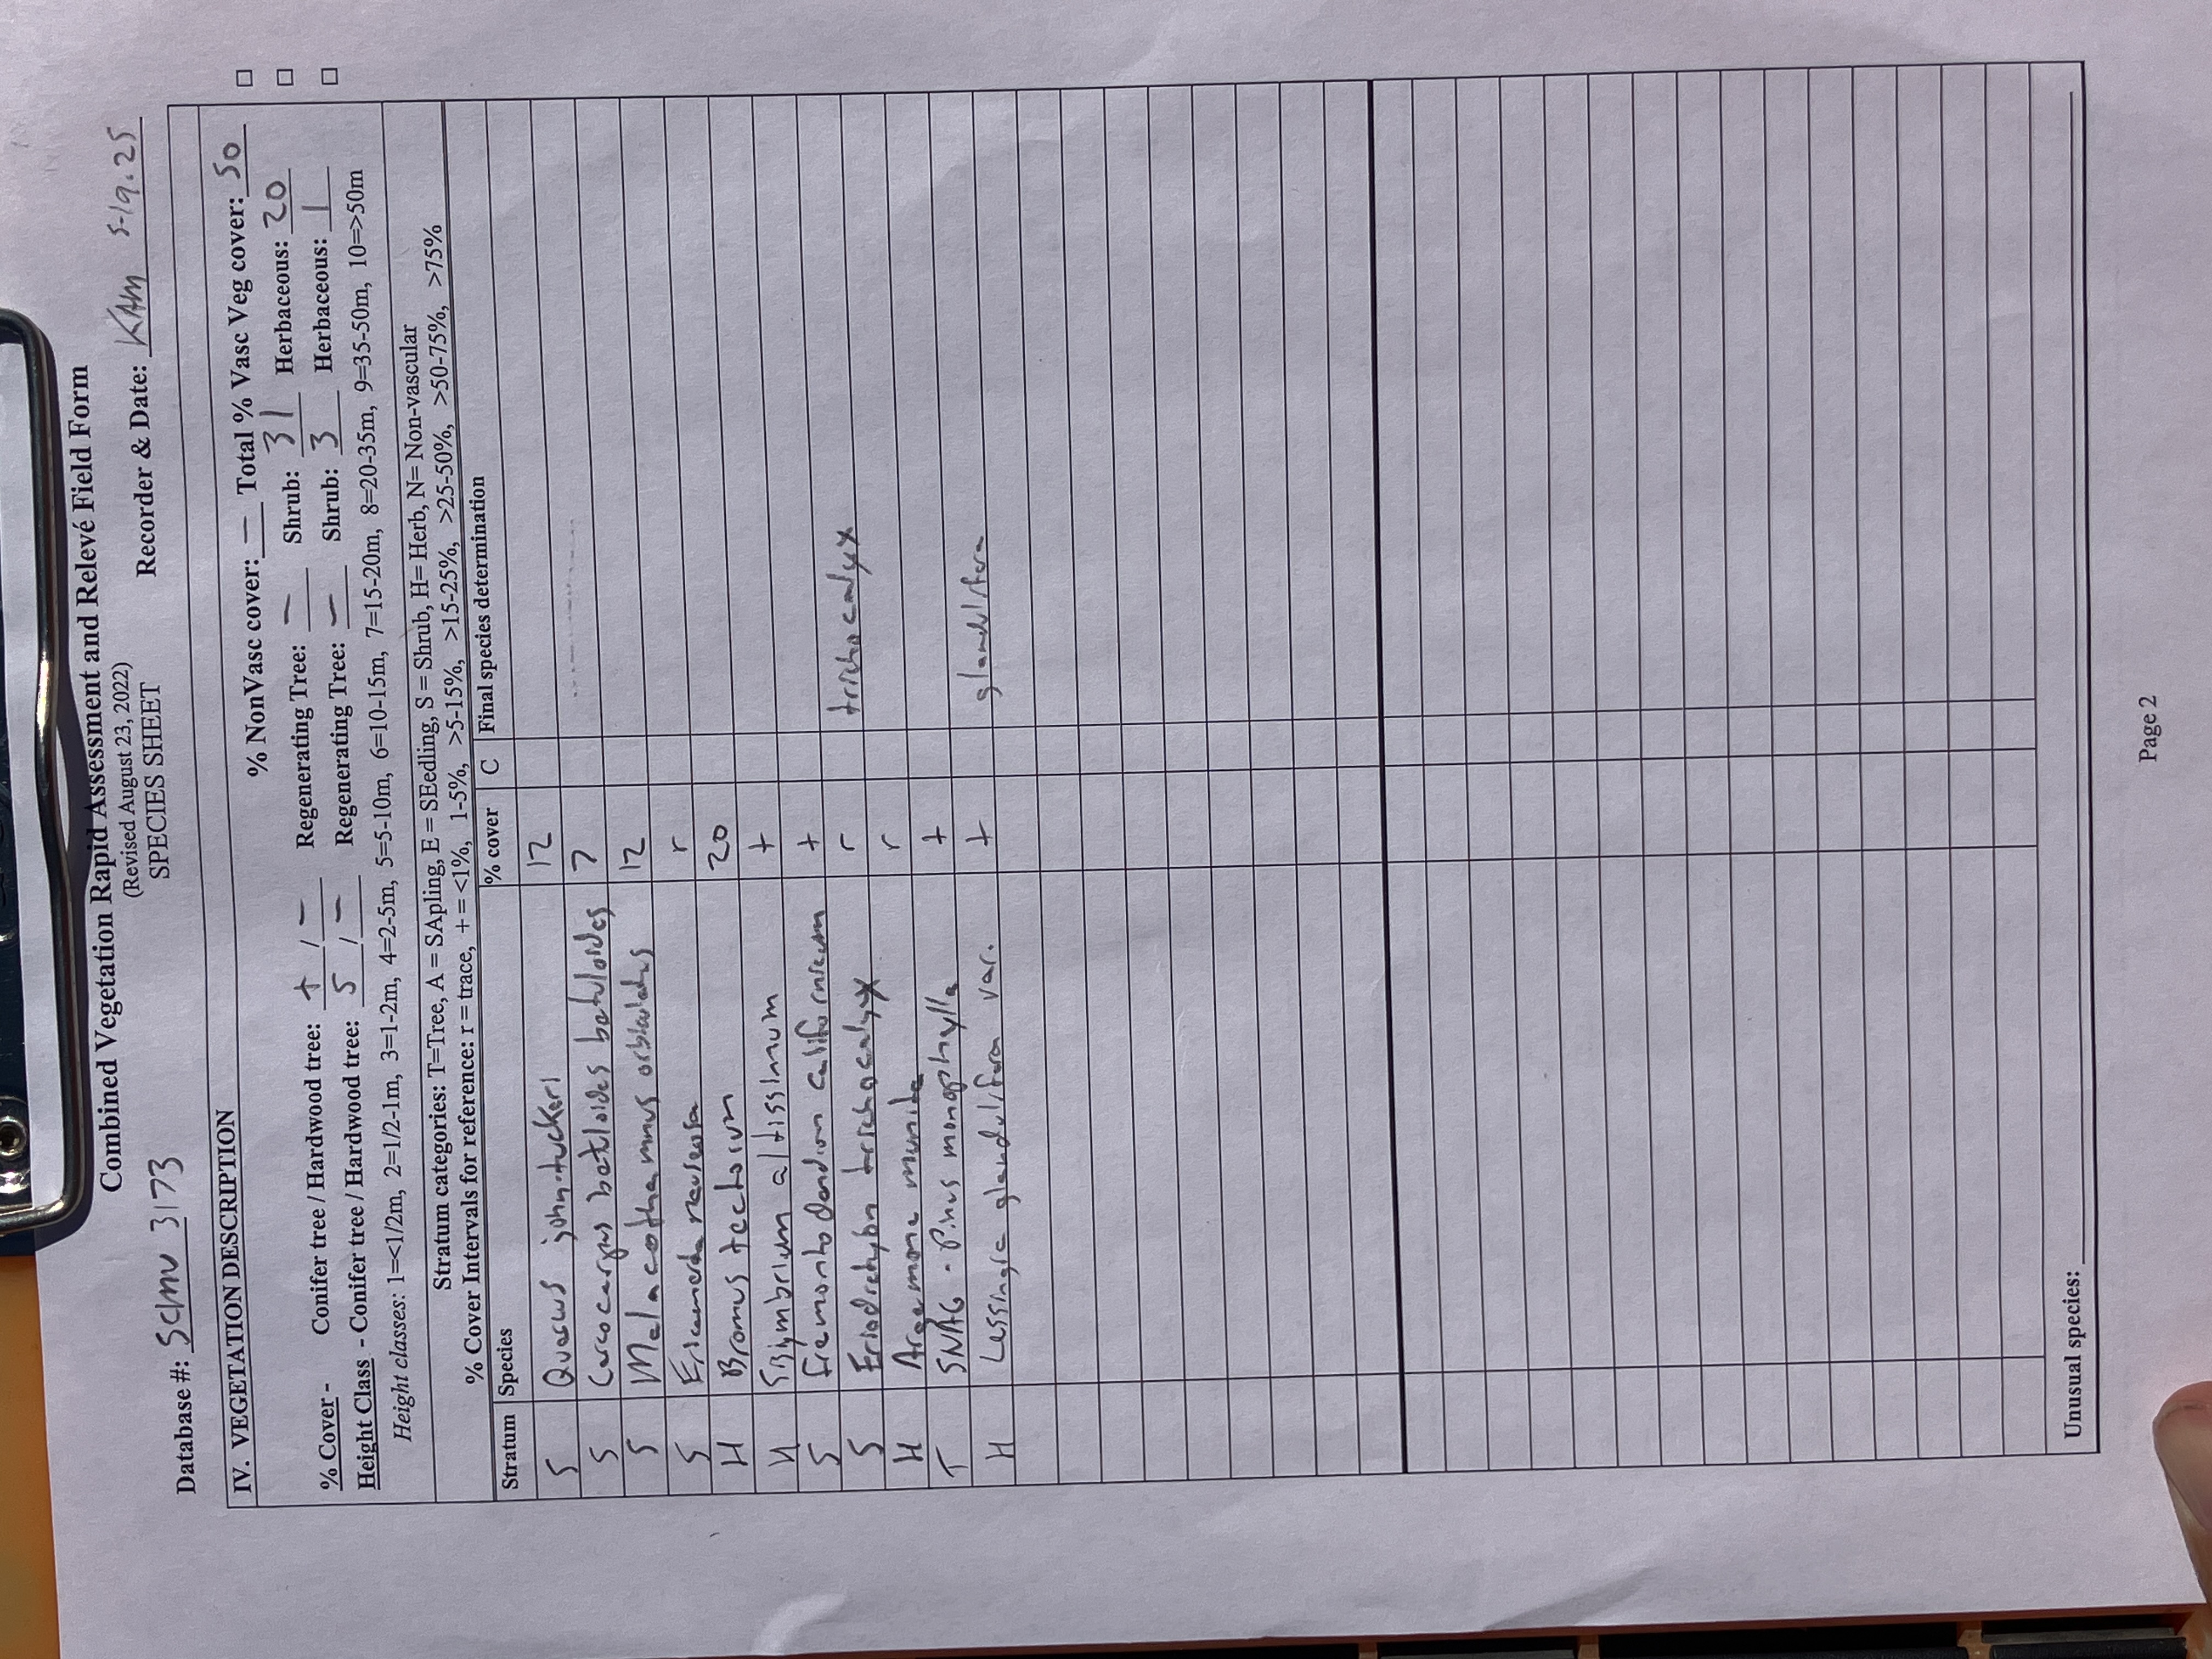 Combined Vegetation Rapid Assessment and Relevé Field Form
(Revised August 23, 2022)
SPECIES SHEET
Database #: SCMV 3173 Recorder & Date: KAM 5-19.25
IV. VEGETATION DESCRIPTION
% NonVasc cover: — Total % Vasc Veg cover: 50 □
% Cover - Conifer tree / Hardwood tree: + / — Regenerating Tree: — Shrub: 31 Herbaceous: 20 □
Height Class - Conifer tree / Hardwood tree: 5 / — Regenerating Tree: — Shrub: 3 Herbaceous: 1 □
Height classes: 1=<1/2m, 2=1/2-1m, 3=1-2m, 4=2-5m, 5=5-10m, 6=10-15m, 7=15-20m, 8=20-35m, 9=35-50m, 10=>50m
Stratum categories: T=Tree, A = SApling, E = SEedling, S = Shrub, H= Herb, N= Non-vascular
% Cover Intervals for reference: r = trace, + = <1%, 1-5%, >5-15%, >15-25%, >25-50%, >50-75%, >75%
Stratum Species % cover C Final species determination
S Quercus john-tuckeri 12
S Cercocarpus betuloides betuloides 7
S Malacothamnus orbiculatus 12
S Ericameria nauseosa r
H Bromus tectorum 20
H Sisymbrium altissimum +
S Fremontodendron californicum +
S Eriodictyon trichocalyx r trichocalyx
H Argemone munita r
T SNAG - Pinus monophylla +
H Lessingia glandulifera var. + glandulifera
Unusual species:
Page 2